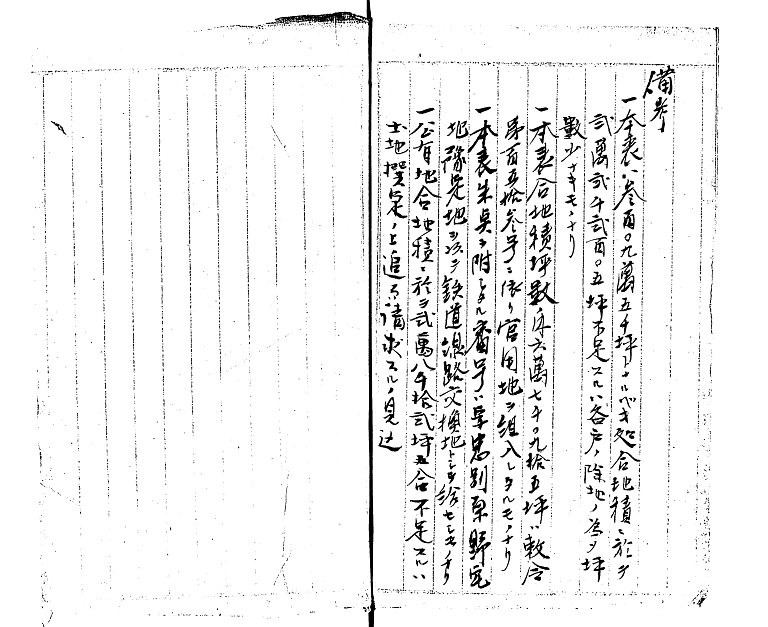 備考
一本表ハ叁百〇九萬五千坪トナルベキ処合地積ニ於テ
弐萬弐千弐百〇五坪不足スルハ各戸ノ除地ノ為メ坪
數少ナキモノナリ
一本表合地積坪數ノ内六萬七千〇九拾五坪ハ敕令
第百五拾参号ニ依リ官用地ヲ組入レタルモノナリ
一本表朱点ヲ附シタル番号ハ忠別原野宅
地豫定地ヲ以テ鉄道線路交換地トシテ給セシモノナリ
一公有地合地積ニ於テ弐萬八千拾弐坪五合不足スルハ
土地撰定ノ上追テ請求スルノ見込